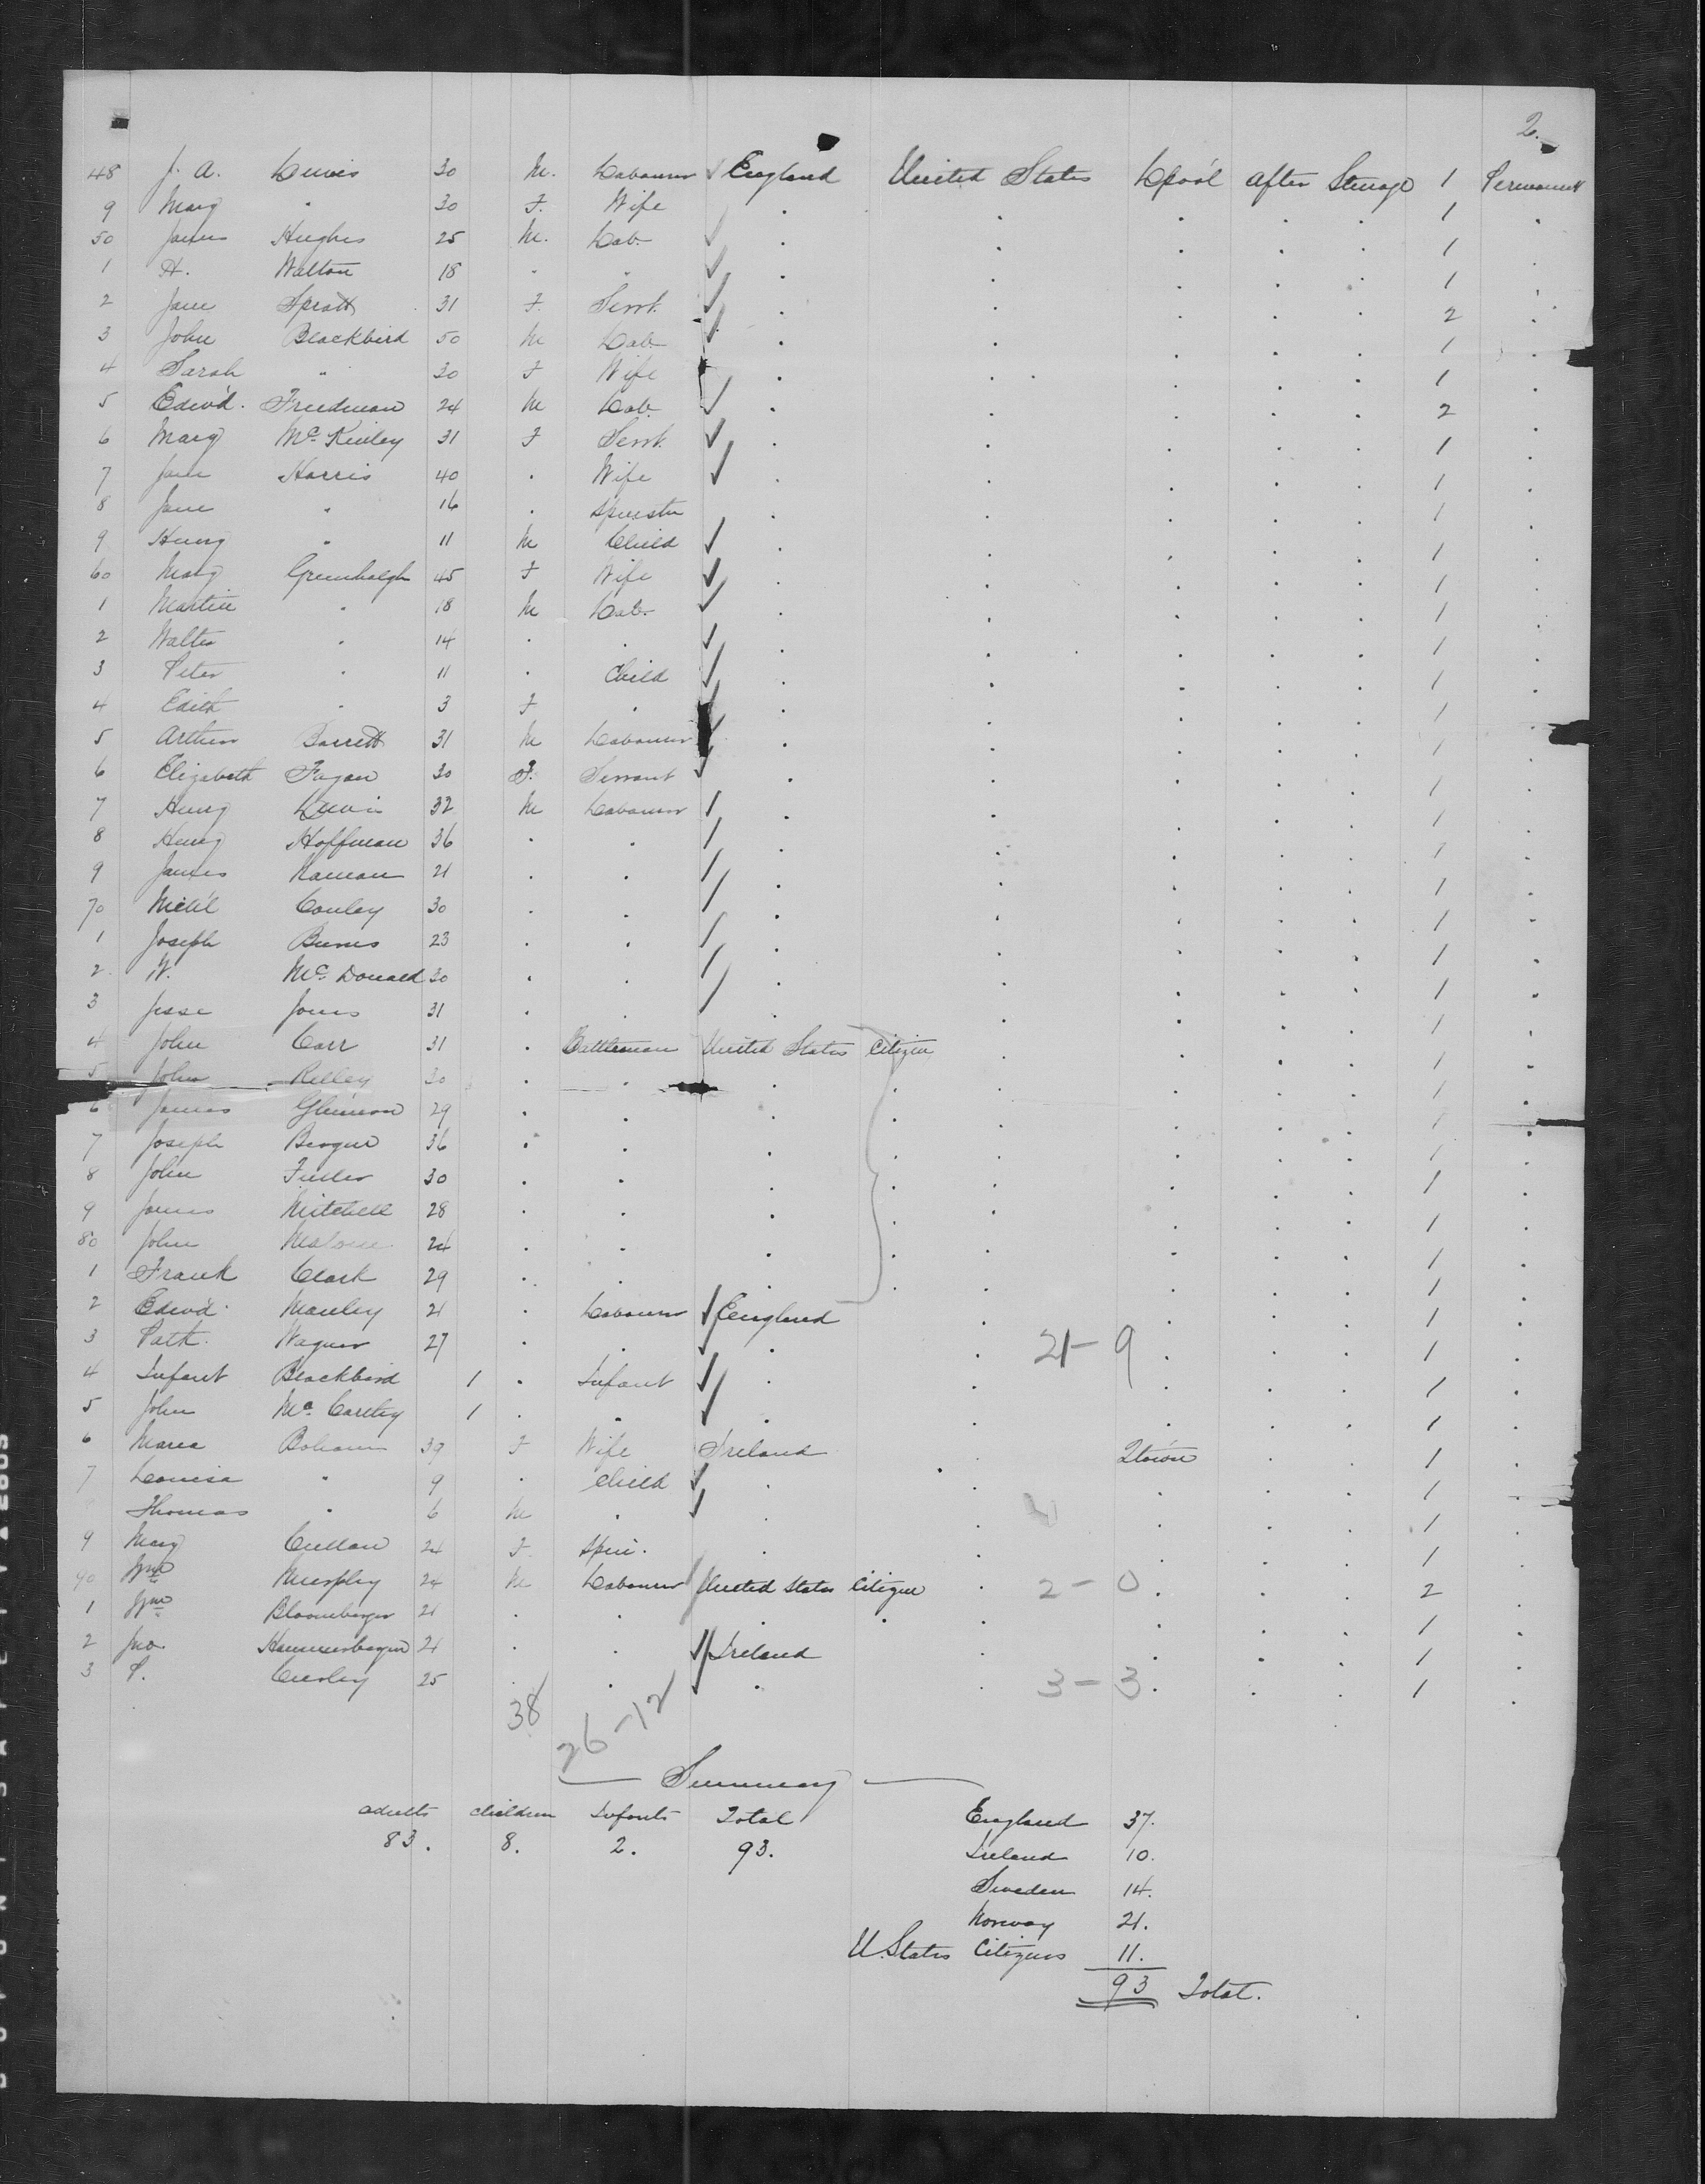 2.
48 J. A. Lewis 30 M. Labourer ✓ England United States L'pool after Steerage 1 Permanent
9 Mary " 30 F. Wife . . . . . 1 .
50 James Hughes 25 M. Lab. ✓ . . . . . 1 .
1 H. Walton 18 " " ✓ . . . . . 1 .
2 Jane Spratt 31 F. Servt. ✓ . . . . . 2 .
3 John Blackbird 50 M Lab. ✓ . . . . . 1 .
4 Sarah " 30 F Wife . . . . . 1 .
5 Edwd. Friedman 24 M Lab. ✓ . . . . . 2 .
6 Mary Mc Kinley 31 F Servt. ✓ . . . . . 1 .
7 Jane Harris 40 . Wife ✓ . . . . . 1 .
8 Jane " 16 . Spinster . . . . . 1 .
9 Henry " 11 M Child ✓ . . . . . 1 .
60 Mary Greenhalgh 45 F Wife ✓ . . . . . 1 .
1 Martin " 18 M Lab. ✓ . . . . . 1 .
2 Walter " 14 . . ✓ . . . . . 1 .
3 Peter " 11 . Child ✓ . . . . . 1 .
4 Edith " 3 F . ✓ . . . . . 1 .
5 Arthur Barrett 31 M Labourer ✓ . . . . . 1 .
6 Elizabeth Fagan 30 F. Servant ✓ . . . . . 1 .
7 Henry Lewis 32 M Labourer . . . . . 1 .
8 Henry Hoffman 36 . . . . . . . 1 .
9 James 21 . . . . . . . 1 .
70 Mich'l Conley 30 . . . . . . . 1 .
1 Joseph Burns 23 . . . . . . . 1 .
2 W. Mc Donald 30 . . . . . . . 1 .
3 Jesse Jones 31 . . . . . . . 1 .
4 John Carr 31 . Cattleman United States Citizen . . . . 1 .
5 John Kelley 30 . . . . . . . . 1 .
6 James 29 . . . . . . . . 1 .
7 Joseph 36 . . . . . . . . 1 .
8 John Fuller 30 . . . . . . . . 1 .
9 James Mitchell 28 . . . . . . . . 1 .
80 John Malone 24 . . . . . . . . 1 .
1 Frank Clark 29 . . . . . . . . 1 .
2 Edwd. Manley 21 . Labourer ✓ England . . . . 1 .
3 Patk. Wagner 27 . . ✓ . . 21-9 . . . 1 .
4 Infant Blackbird 1 . Infant ✓ . . . . . 1 .
5 John Mc Carthy 1 . " ✓ . . . . . 1 .
6 Maria 39 F Wife Ireland . Qtown . . 1 .
7 Louisa " 9 . Child ✓ . . . . . 1 .
Thomas " 6 M . ✓ . . . . . 1 .
9 Mary Cullan 24 F Spin. . . . . . 1 .
90 Wm Murphy 24 M Labourer United States Citizen . 2-0 . . . 2 .
1 Wm Bloomberger 21 . . . . . . . . 1 .
2 Jno. 21 . . ✓ Ireland . . . . 1 .
3 P. Curley 25 . . ✓ . . 3-3 . . . 1 .
38
26-12
Summary
Adults Children Infants Total
83. 8. 2. 93.
England 37.
Ireland 10.
Sweden 14.
Norway 21.
U. States Citizens 11.
93 Total.